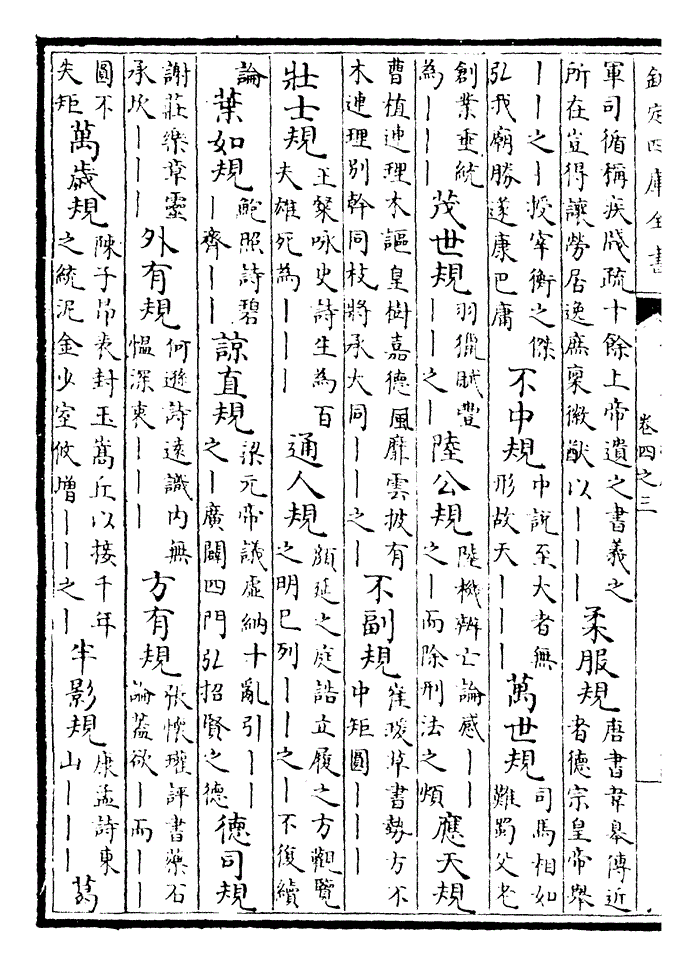 欽定四庫全書
卷四之三
軍司循稱疾牋疏十餘上帝遺之書義之所在豈得讓勞居逸庶稟徽猷以｜｜｜柔服規唐書韋臯傳近者德宗皇帝舉
｜｜之｜授宰衡之傑弘我廟勝遂康巴庸不中規中說至大者無形故天｜｜｜萬世規司馬相如難蜀父老
創業垂統為｜｜｜茂世規羽獵賦豐｜｜之｜陸公規陸機辨亡論感｜｜之｜而除刑法之煩應天規
曹植連理木謳皇樹嘉德風靡雲披有木連理別幹同枝將承大同｜｜之｜不副規崔瑗草書勢方不中矩圓｜｜｜
壯士規王粲咏史詩生為百夫雄死為｜｜｜通人規顏延之庭誥立履之方觀覽之明已列｜｜之｜不復續
論葉如規鮑照詩碧｜齊｜｜諒直規梁元帝議虛納十亂引｜｜之｜廣闢四門弘招賢之德德司規
謝莊樂章靈承坎｜｜｜外有規何遜詩遠識内無愠深衷｜｜｜方有規張懷瓘評書藥石論蓋欲｜而｜｜
圓不失矩萬歲規陳子昻表封玉嵩丘以接千年之統泥金少室攸增｜｜之｜半影規康孟詩東山｜｜｜萬